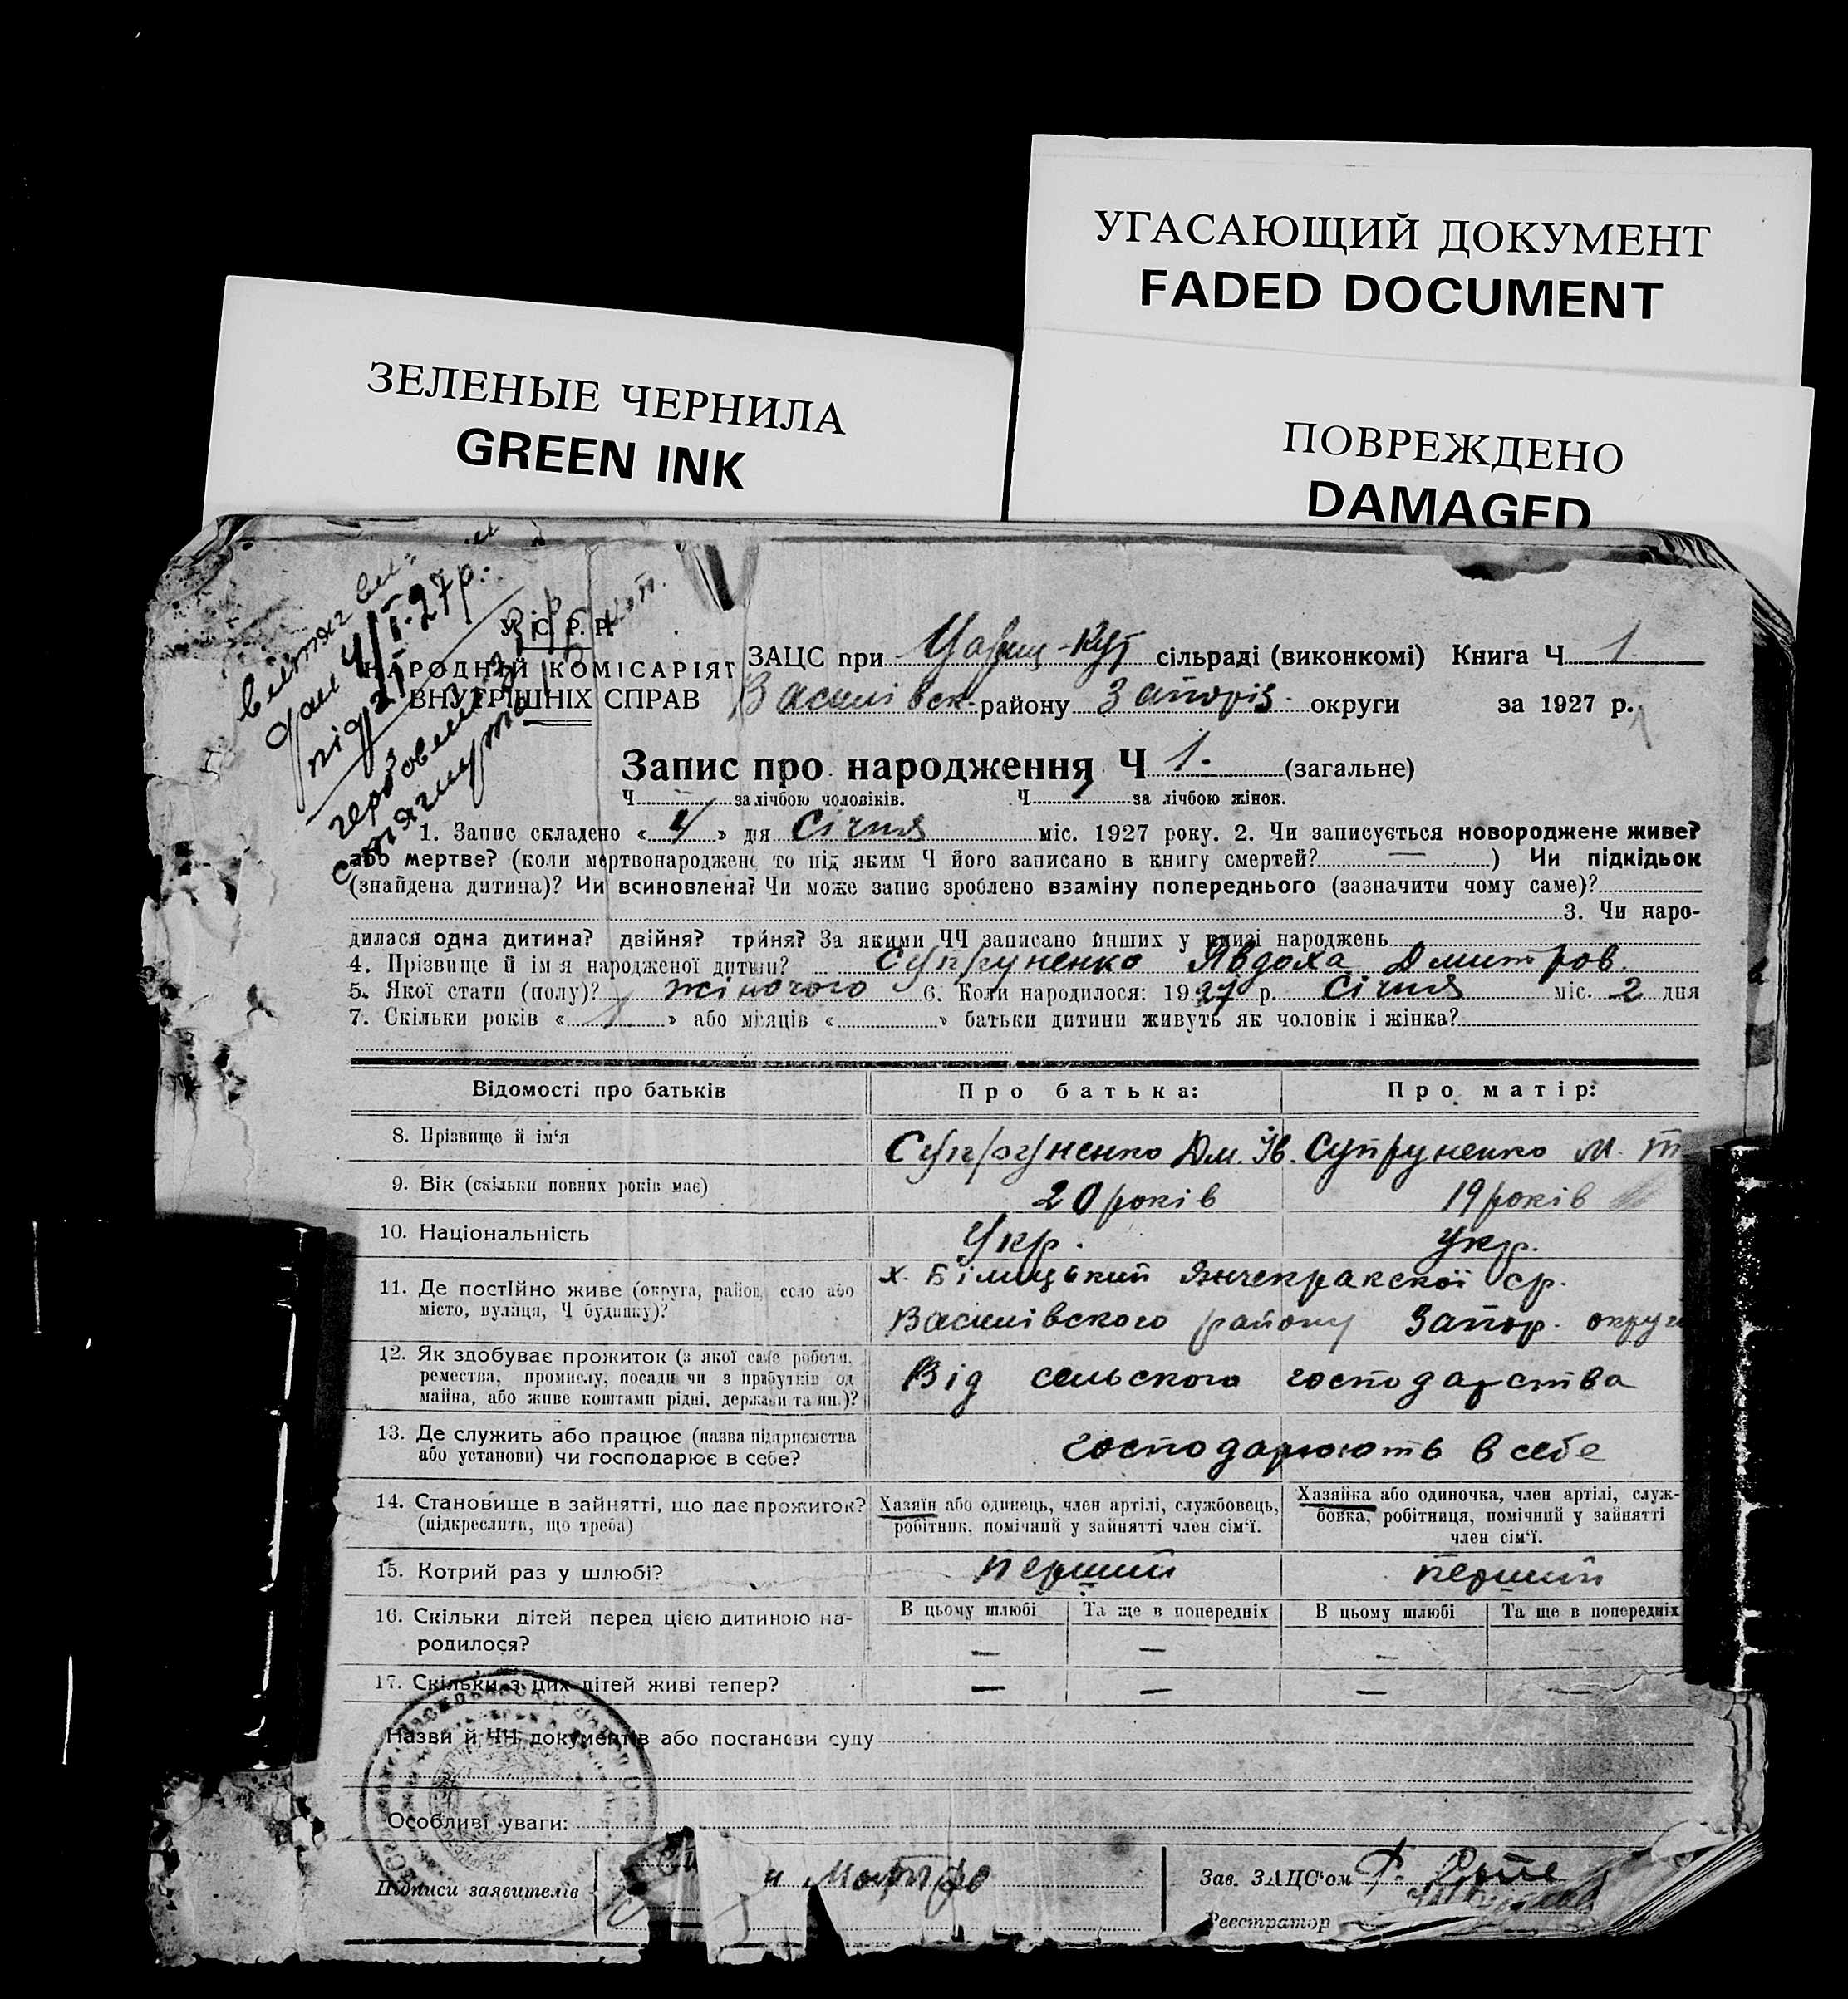 УГАСАЮЩИЙ ДОКУМЕНТ
FADED DOCUMENT
ЗЕЛЕНЫЕ ЧЕРНИЛА
GREEN INK
ПОВРЕЖДЕНО
DAMAGED
витяг
4/I-27р.
під
У. С. Р. Р.
НАРОДНІЙ КОМІСАРІЯТ
ВНУТРІШНІХ СПРАВ
ЗАЦС при Цариц-Кут сільраді (виконкомі) Книга Ч 1
Василівск. району Запоріз. округи за 1927 р.
Запис про народження Ч 1. (загальне)
Ч за лічбою чоловіків. Ч 1 за лічбою жінок.
1. Запис складено « 4 » дня Січня міс. 1927 року. 2. Чи записується новороджене живе?
або мертве? (коли мертвонароджене то під яким Ч його записано в книгу смертей? — ) Чи підкідьок
(знайдена дитина)? Чи всиновлена? Чи може запис зроблено взаміну попереднього (зазначити чому саме)?
3. Чи наро-
дилася одна дитина? двійня? трійня? За якими ЧЧ записано инших у книзі народжень
4. Прізвище й ім'я народженої дитини? Супруненко Явдоха Дмитров.
5. Якої стати (полу)? жіночого 6. Коли народилося: 1927 р. Січня міс. 2 дня
7. Скільки років « 1 » або місяців « » батьки дитини живуть як чоловік і жінка?
Відомості про батьків Про батька: Про матір:
8. Прізвище й ім'я Супруненко Дм. Ів. Супруненко М. Т
9. Вік (скільки повних років має) 20 років 19 років
10. Національність Укр. Укр.
11. Де постійно живе (округа, район, село або х. Білицький Янчекракскої ср.
місто, вулиця, Ч будинку)? Василівского району Запор. округи
12. Як здобуває прожиток (з якої саме роботи,
ремества, промислу, посади чи з прибутків од Від сельского господарства
майна, або живе коштами рідні, держави та ин.)?
13. Де служить або працює (назва підприємства
або установи) чи господарює в себе? господарюють в себе
14. Становище в зайнятті, що дає прожиток? Хазяїн або одинець, член артілі, службовець, Хазяйка або одиночка, член артілі, служ-
(підкреслити, що треба) робітник, помічний у зайнятті член сім'ї. бовка, робітниця, помічний у зайнятті
член сім'ї.
15. Котрий раз у шлюбі? перший перший
16. Скільки дітей перед цією дитиною на- В цьому шлюбі Та ще в попередніх В цьому шлюбі Та ще в попередніх
родилося? — — —
17. Скільки з цих дітей живі тепер? — — — —
Назви й ЧЧ документів або постанови суду
Особливі уваги:
Підписи заявителів
Зав. ЗАЦС'ом
Реєстратор